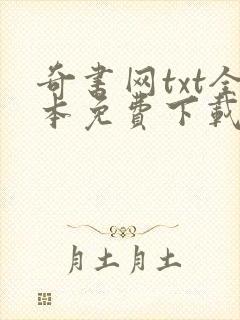 奇书网txt全
本免费下载
月土月土